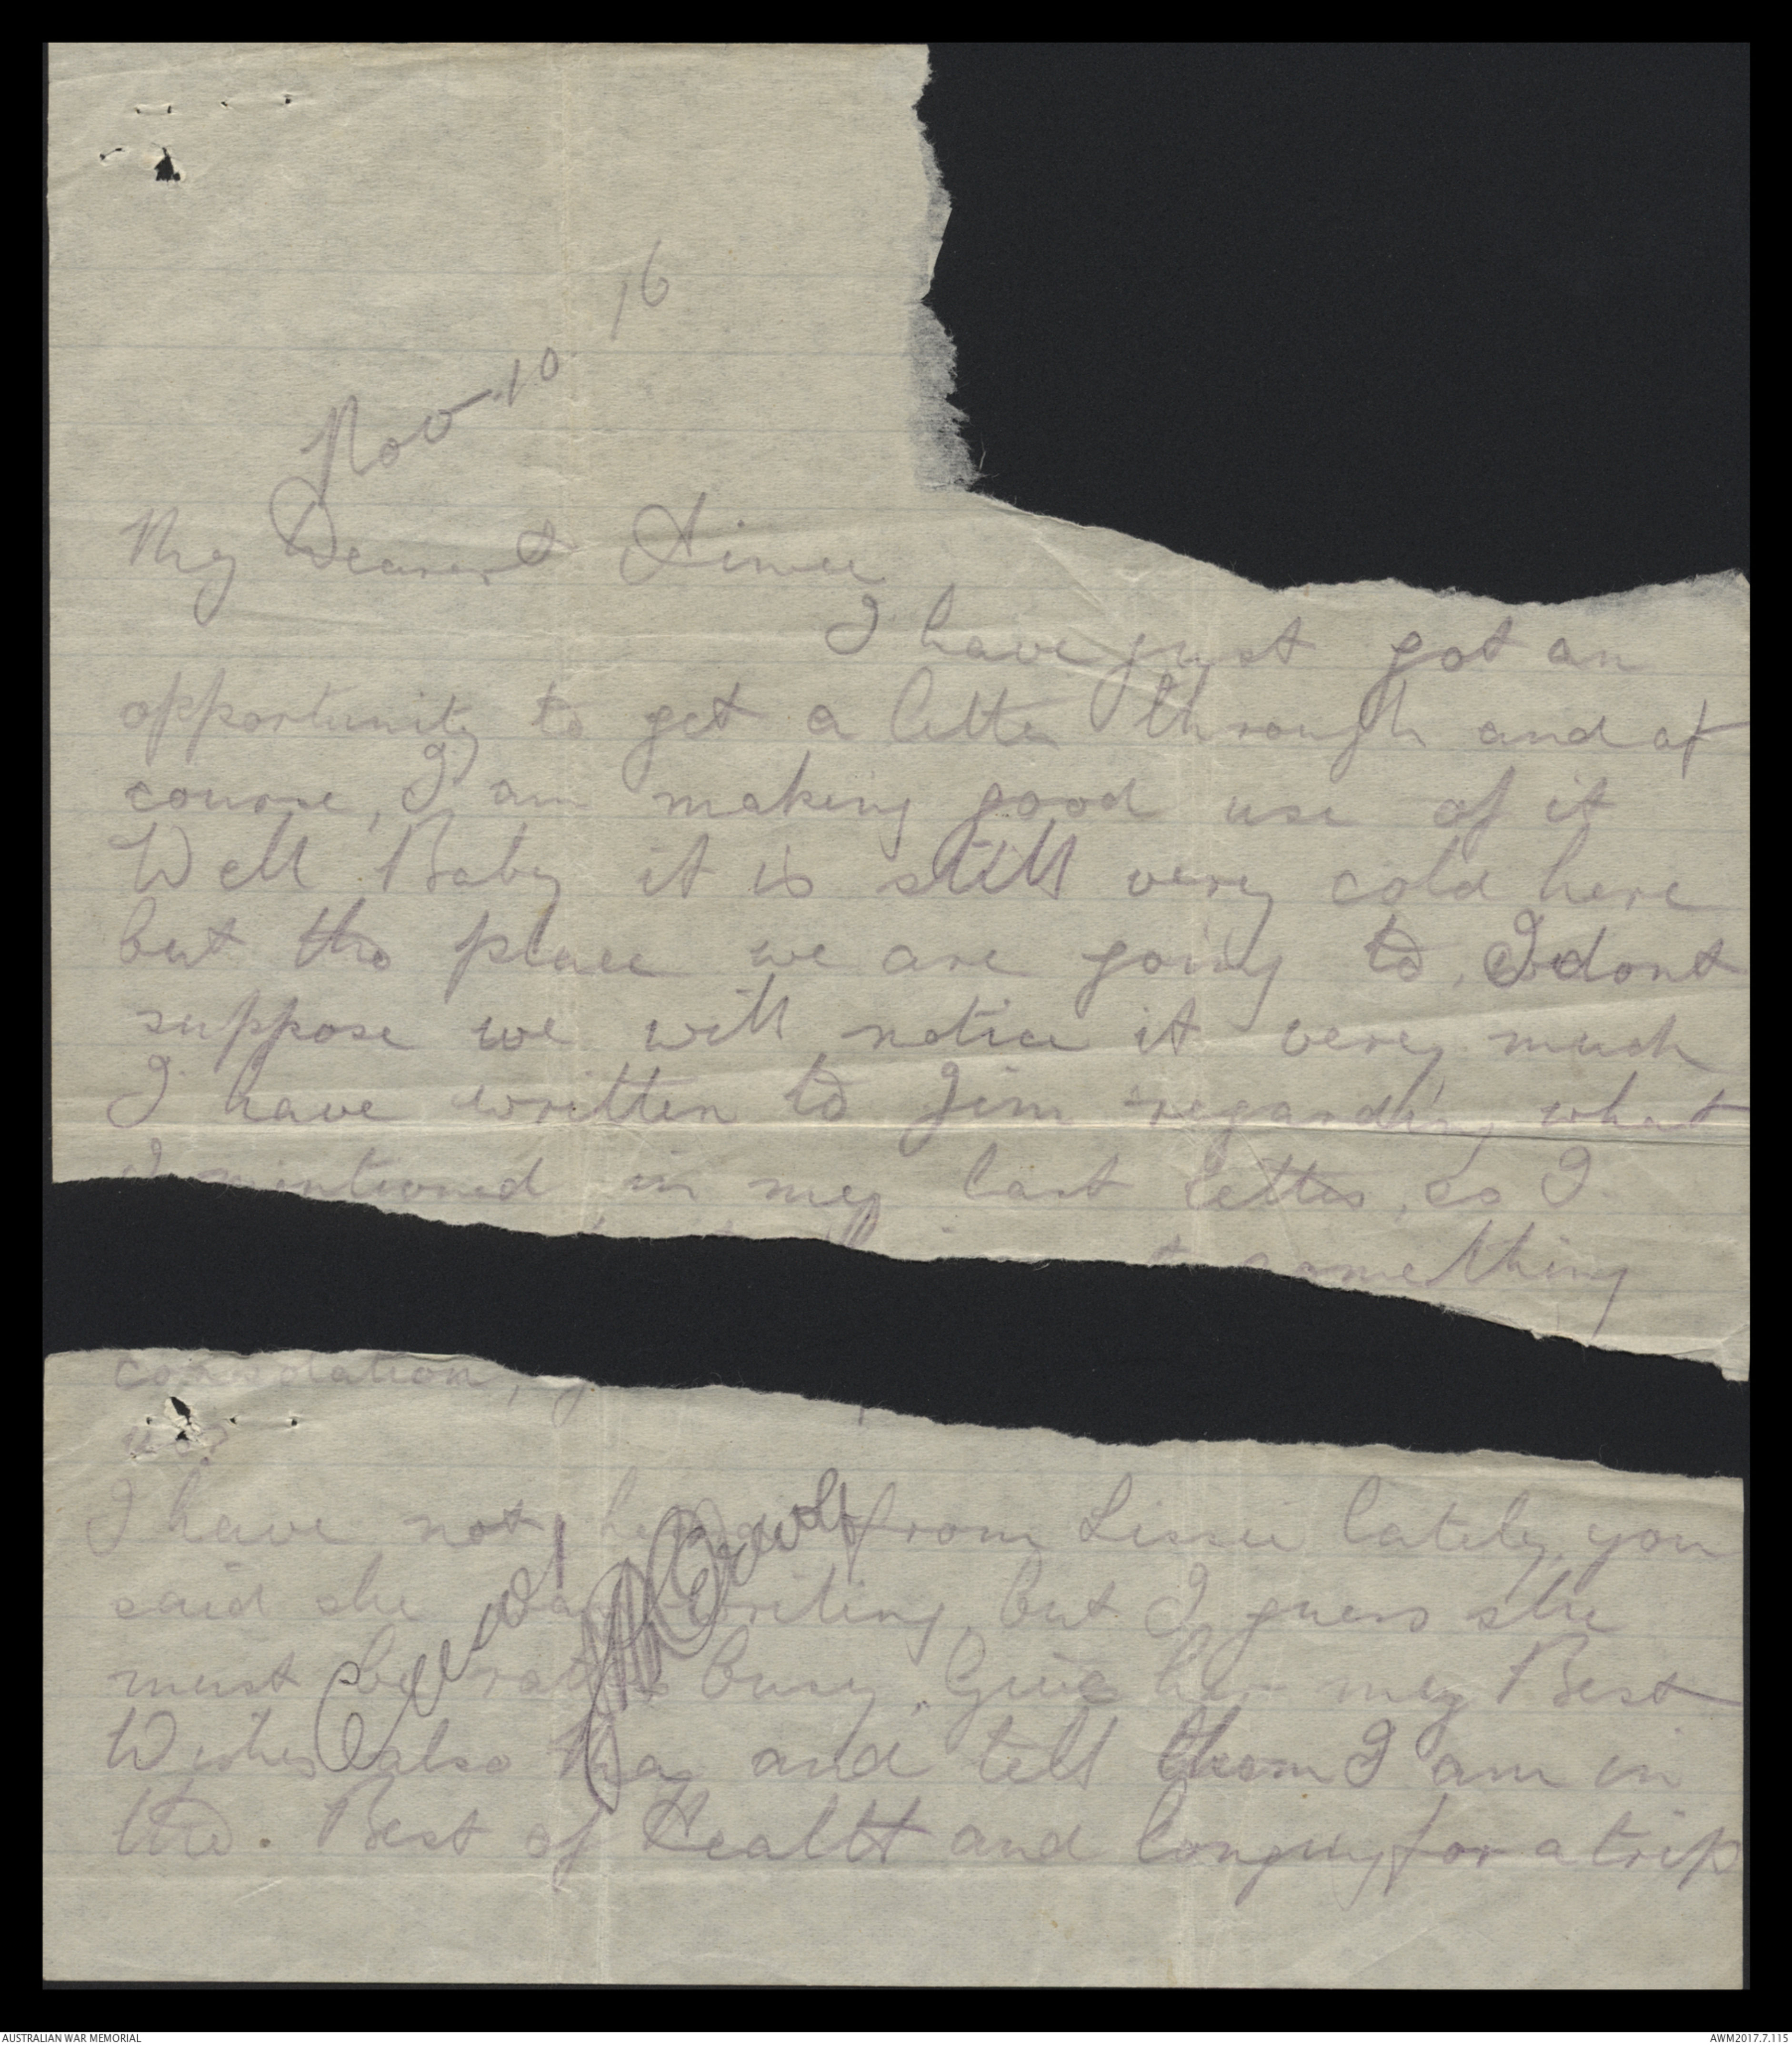 Nov 10 16
My Dearest Aimee
I have just got an
opportunity to get a letter through and of
course, I am making good use of it
Well Baby it is still very cold here
but the place we are going to, I dont
suppose we will notice it very much
I have written to Jim regarding what
I mentioned in my last letter, so I
something
consolation,
us.
I have not from Lissie lately, you
said she was writing, but I guess she
must be rather busy, Give her my Best
Wishes also Ma and tell them I am in
the. Best of Health and longing for a trip
Censored
AUSTRALIAN WAR MEMORIAL
AWM2017.7.115